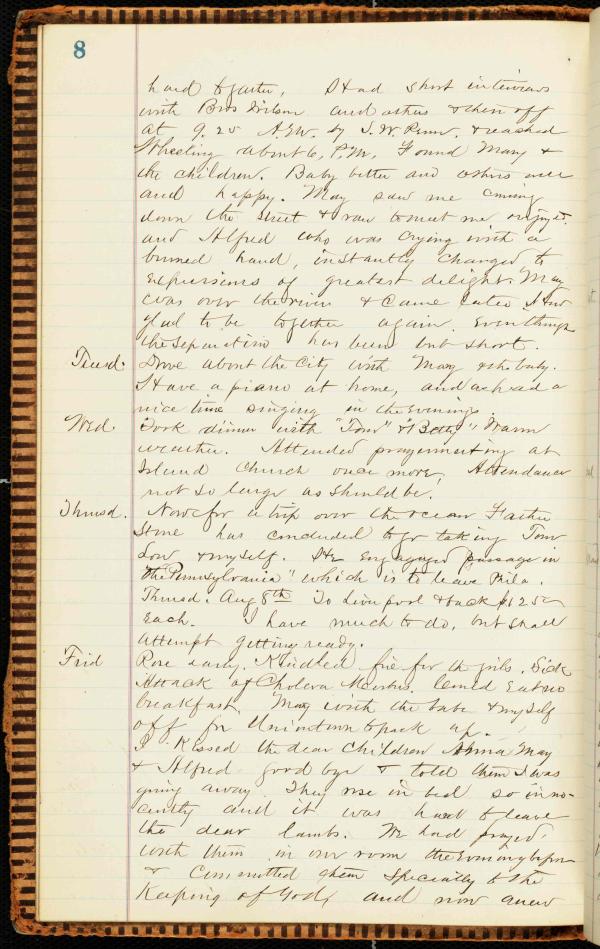 8
hard together. Had short interviews
with Bros Wilson and others & then off
at 9.25 A.M. by & reached
Wheeling about 6, P.M. Found Mary &
the children. Baby better and others well
and happy. May saw me coming
down the street & ran to meet me
and Alfred who was crying with a
burned hand, instantly changed to
expressions of greatest delight. Mary
was over the river & came later
glad to be together again. Even though
the separation has been but short.
Tuesd. Drove about the City with Mary & the baby.
Have a piano at home, and had a
nice time singing in the evenings.
Wed. Took dinner with "Tom" & "Betty" Warm
weather. Attended prayermeeting at
Island Church once more, Attendance
not so large as should be.
Thursd. Now for a trip over the ocean Father
Stone has concluded to go taking Tom
Lou & myself. He engaged passage in
the "Pennsylvania" which is to leave Phila.
Thursd. Aug 8th To Liverpool & back $125
each. I have much to do, but shall
attempt getting ready.
Frid Rose early. Kindled fire for the girls. Sick
Attack of Cholera Morbus. Could eat no
breakfast. Mary with the babe & myself
off for Uniontown to pack up.
I kissed the dear children Anna May
& Alfred good bye & told them I was
going away. They rose in bed so inno-
cently and it was hard to leave
the dear lambs. We had prayed
with them in our room the evening before
& committed them specially to the
Keeping of God, and now anew